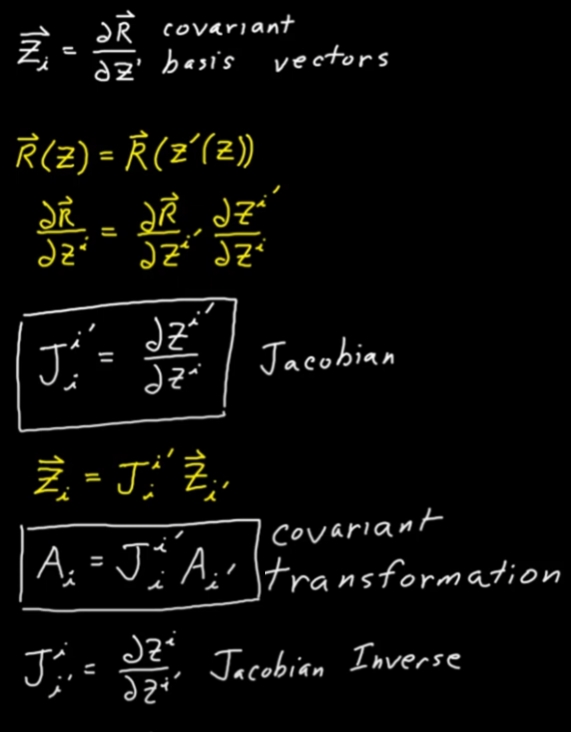 \vec{Z}_i = \frac{\partial \vec{R}}{\partial Z^i} covariant basis vectors
\vec{R}(Z) = \vec{R}(Z'(Z))
\frac{\partial \vec{R}}{\partial Z^i} = \frac{\partial \vec{R}}{\partial Z^{i'}} \frac{\partial Z^{i'}}{\partial Z^i}
J^{i'}_i = \frac{\partial Z^{i'}}{\partial Z^i} Jacobian
\vec{Z}_i = J^{i'}_i \vec{Z}_{i'}
A_i = J^{i'}_i A_{i'} covariant transformation
J^i_{i'} = \frac{\partial Z^i}{\partial Z^{i'}} Jacobian Inverse